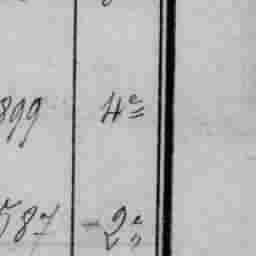 899 4e
587 - 2e